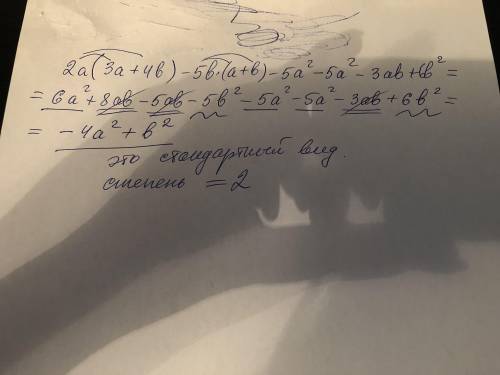 2a(3a+4b)-5b·(a+b)-5a²-5a²-3ab+6b²=
=6a²+8ab-5ab-5b²-5a²-5a²-3ab+6b²=
=-4a²+b²
это стандартный вид.
степень =2